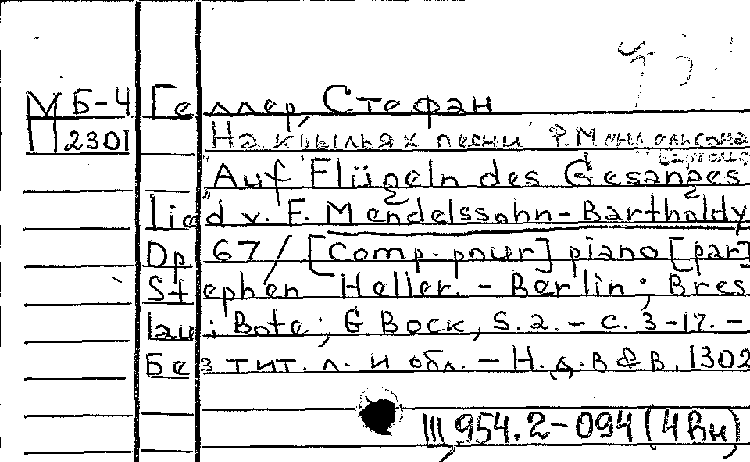 М Б-4 Геллер, Стефан
П 2301 "На крыльях песни" Ф. Мендельсона
Бартольд
"Auf Flügeln des Gesanges"
Lied v. F. Mendelssohn-Bartholdy
Op. 67 / [Comp. pour] piano [par]
Stephen Heller. - Berlin; Bres
lau: Bote; G Bock, S. a. - c. 3-17. -
Без тит. л. и обл. - Н. д. B & B. 1302
III, 954.2-094 (4 Вн)